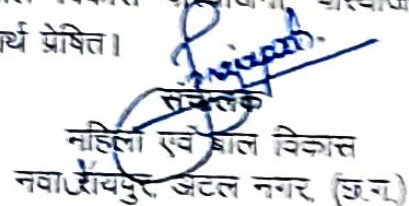 र्थ प्रेषित।
संचालक
महिला एवं बाल विकास
नवा रायपुर अटल नगर (छ.ग.)